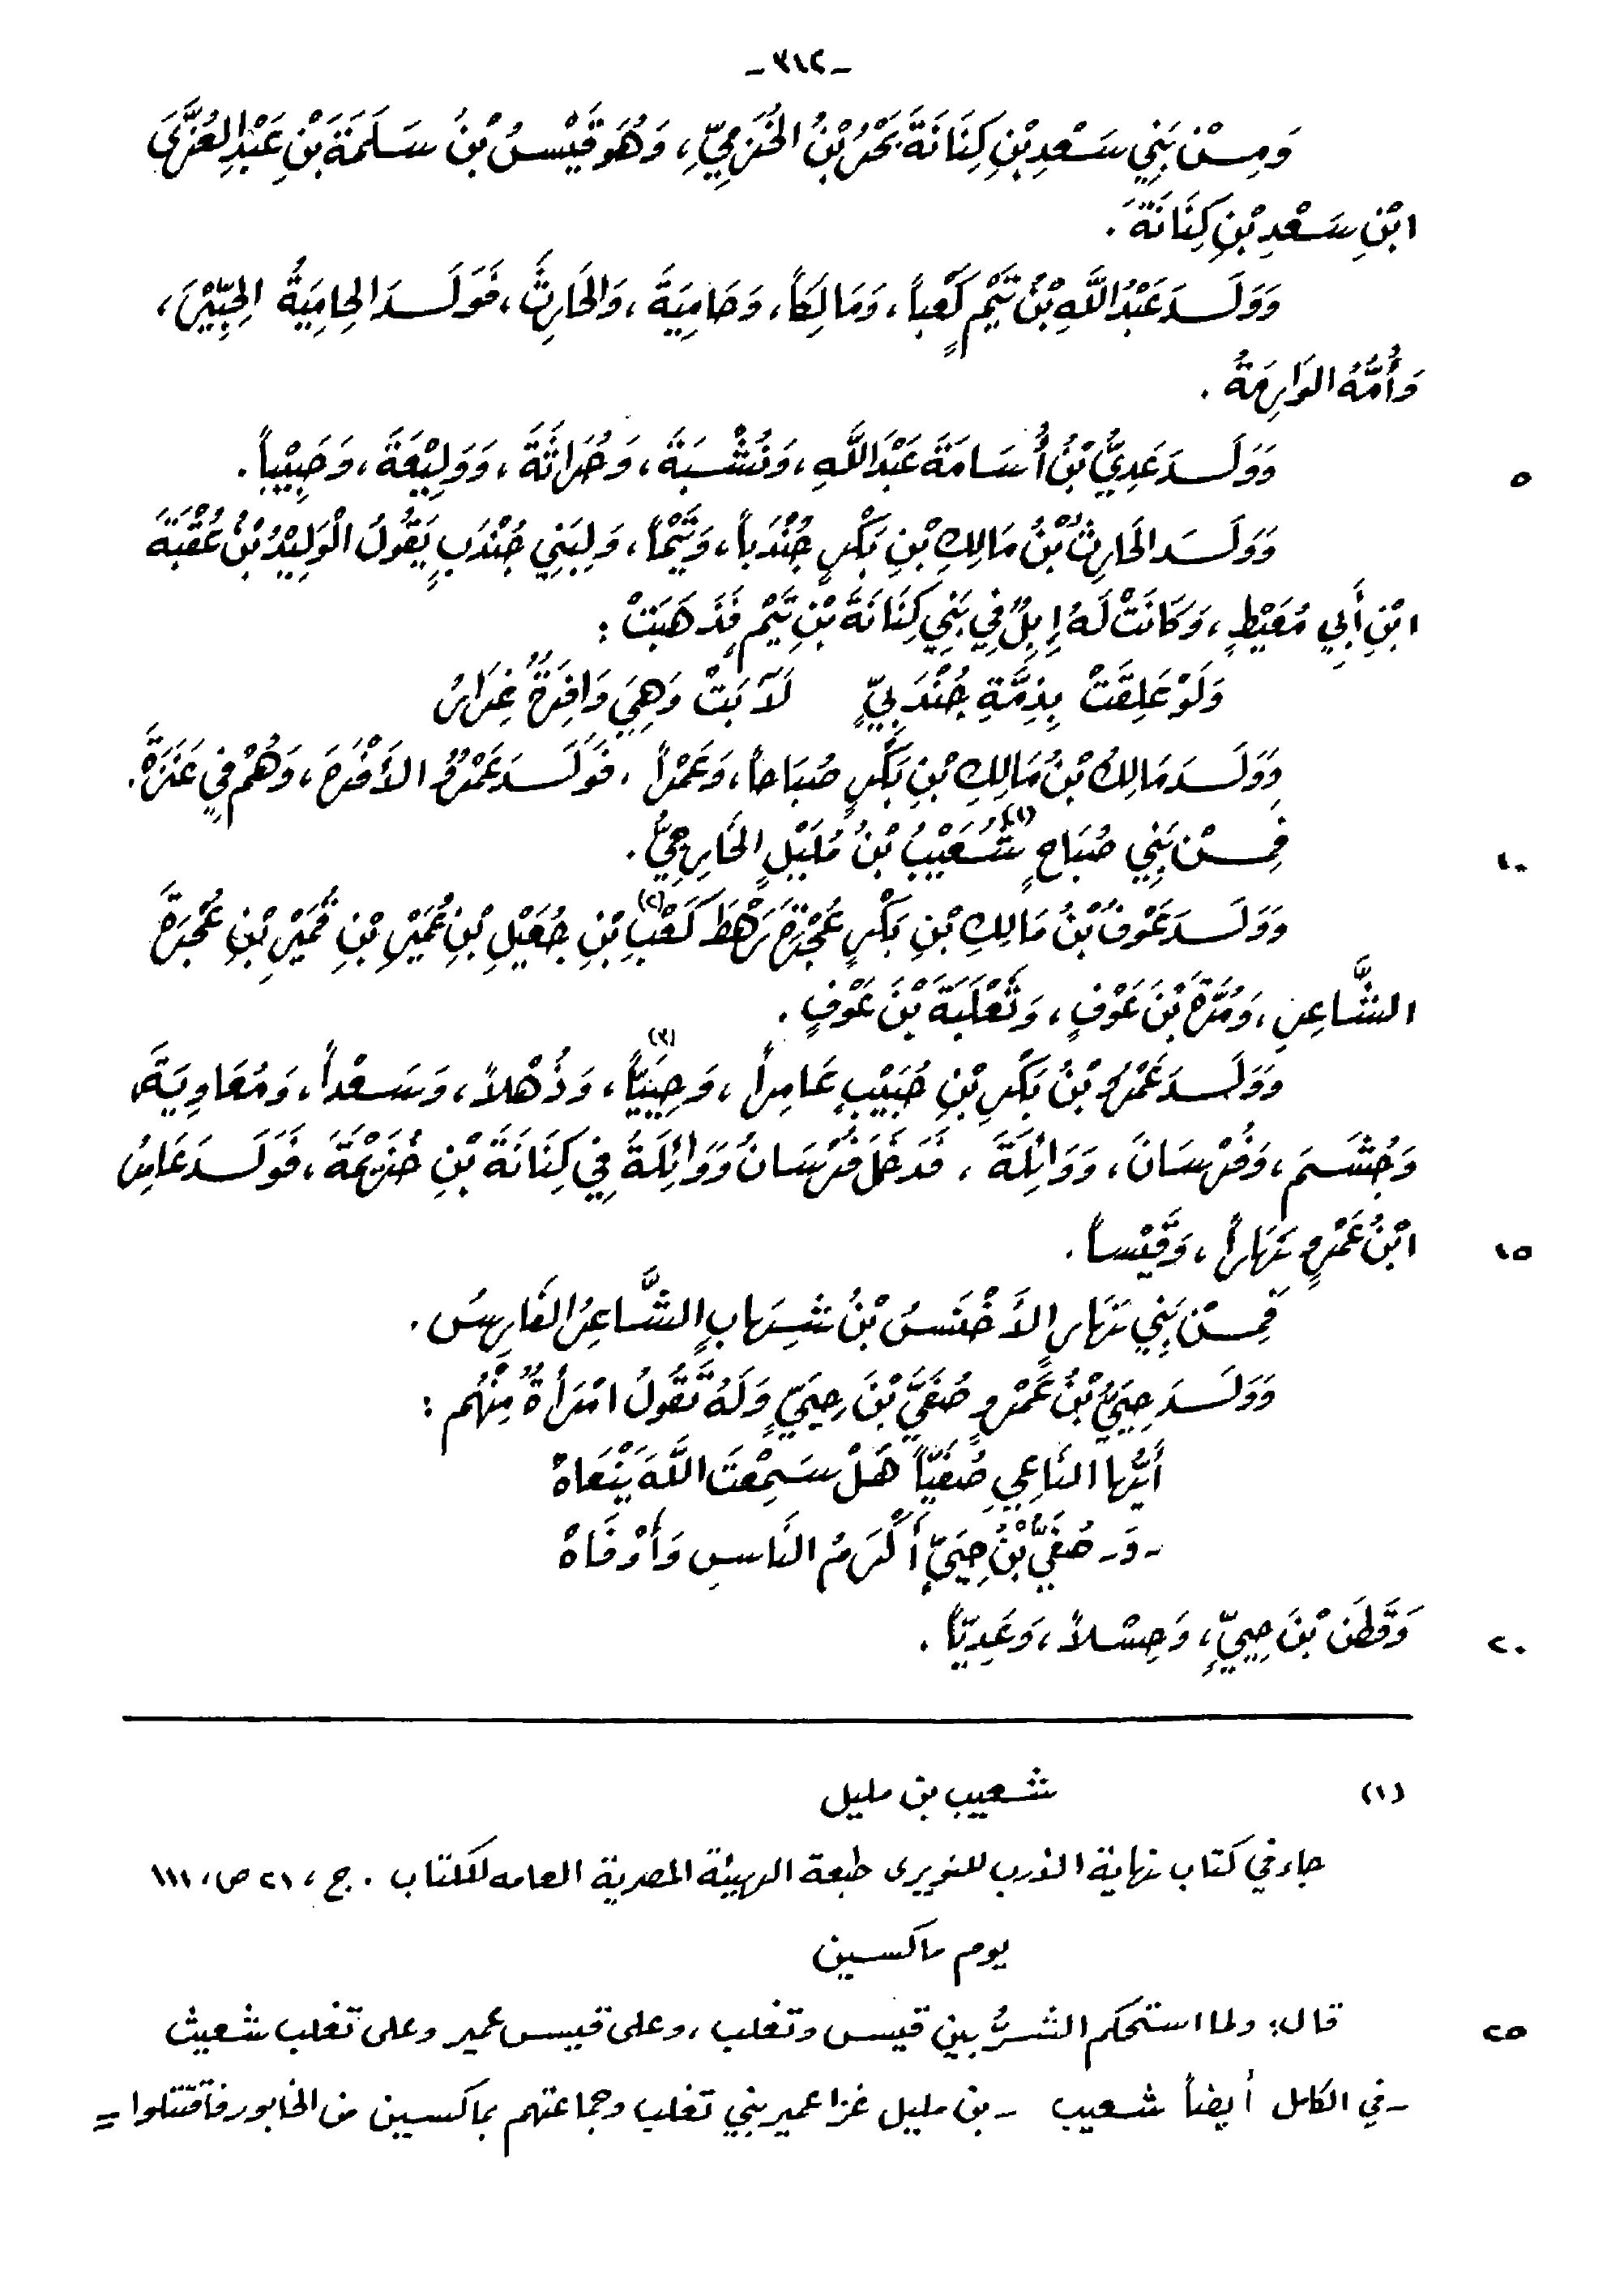 - ٣١٢ -
وَمِنْ بَنِي سَعْدِ بْنِ كِنَانَةَ بَحْرُ بْنُ الخَزْمِيِّ، وَهُوَ قَيْسُ بْنُ سَلَمَةَ بْنِ عَبْدِ العُزَّى
ابْنِ سَعْدِ بْنِ كِنَانَةَ .
وَوَلَـدَ عَبْدُ اللَّهِ بْنُ تَيْمٍ كَعْباً، وَمَالِكاً، وَحَامِيَةَ، وَالحَارِثَ، فَوَلَـدَ الحِامِيَةُ
وَأُمُّهُ الوَارِمَةُ .
٥ وَوَلَـدَ عَدِيُّ بْنُ أُسَامَةَ عَبْدَ اللَّهِ، وَنُشْبَةَ، وَحُرَاثَةَ، وَوَلِيْعَةَ، وَحَبِيْباً .
وَوَلَـدَ الحَارِثُ بْنُ مَالِكِ بْنِ بَكْرٍ جُنْدَباً، وَتَيْماً، وَلِبَنِي جُنْدَبٍ يَقُولُ الْوَلِيْدُ بْنُ عُقْبَةَ
ابْنِ أَبِي مُعَيْطٍ، وَكَانَتْ لَهُ إِبِلٌ فِي بَنِي كِنَانَةَ بْنِ تَيْمٍ فَذَهَبَتْ :
وَلَوْ عَلِقَتْ بِذِمَّةِ جُنْدَبِيٍّ لَآبَتْ وَهِيَ وَافِرَةٌ غِزَارُ
وَوَلَـدَ مَالِكُ بْنُ مَالِكِ بْنِ بَكْرٍ صُبَاحاً، وَعَمْراً . فَوَلَـدَ عَمْرٌو الأَفْرَحَ، وَهُمْ فِي عَنَزَةَ .
١٠ فَمِـنْ بَنِي صُبَاحٍ شُعَيْبُ بْنُ مُلَيْلٍ (١) الخَارِجِيُّ .
وَوَلَـدَ عَوْفُ بْنُ مَالِكِ بْنِ بَكْرٍ عُجْرَةَ رَهْطَ كَعْبِ (٢) بْنِ جُعَيْلِ بْنِ عُمَيْرِ بْنِ قُمَيْرِ بْنِ عُجْرَةَ
الشَّاعِرِ، وَمُرَّةَ بْنَ عَوْفٍ، وَثَعْلَبَةَ بْنَ عَوْفٍ .
وَوَلَـدَ عَمْرُو بْنُ بَكْرِ بْنِ حُبَيْبٍ عَامِراً، وَحِيَيّاً (٣)، وَذُهْلاً، وَسَعْداً، وَمُعَاوِيَةَ
وَجُشَمَ، وَفُرْسَانَ، وَوَائِلَةَ، فَدَخَلَ فُرْسَانُ وَوَائِلَةُ فِي كِنَانَةَ بْنِ خُزَيْمَةَ، فَوَلَـدَ عَامِرُ
١٥ ابْنُ عَمْرٍو نَهَاراً، وَقَيْساً .
فَمِـنْ بَنِي نَهَارٍ الأَخْنَسُ بْنُ شِهَابٍ الشَّاعِرُ الفَارِسُ .
وَوَلَـدَ حِيَيُّ بْنُ عَمْرٍو صُفَيَّ بْنَ حِيَيٍّ وَلَهُ تَقُولُ امْرَأَةٌ مِنْهُم :
أَيُّهَا النَّاعِي صُفَيّاً هَلْ سَمِعْتَ اللَّهَ يَنْعَاهْ
- وَ - صُفَيُّ بْنُ حِيَيٍّ أَكْرَمُ النَّاسِ وَأَوْفَاهْ
٢٠ وَقَطَنَ بْنَ حِيَيٍّ، وَحِسْلاً، وَعَدِيّاً .
(١) شعيب بن مليل
جاء في كتاب نهاية الأرب للنويري طبعة الهيئة المصرية العامه للكتاب . ج، ٢١ ص، ١١١
يوم ماكسين
٢٥ قال: ولما استحكم الشرُّ بين قيس وتغلب، وعلى قيس عمير وعلى تغلب شعيث
- في الكامل أيضاً شعيب - بن مليل غزا عمير بني تغلب وجماعتهم بماكسين من الخابور فاقتتلوا =